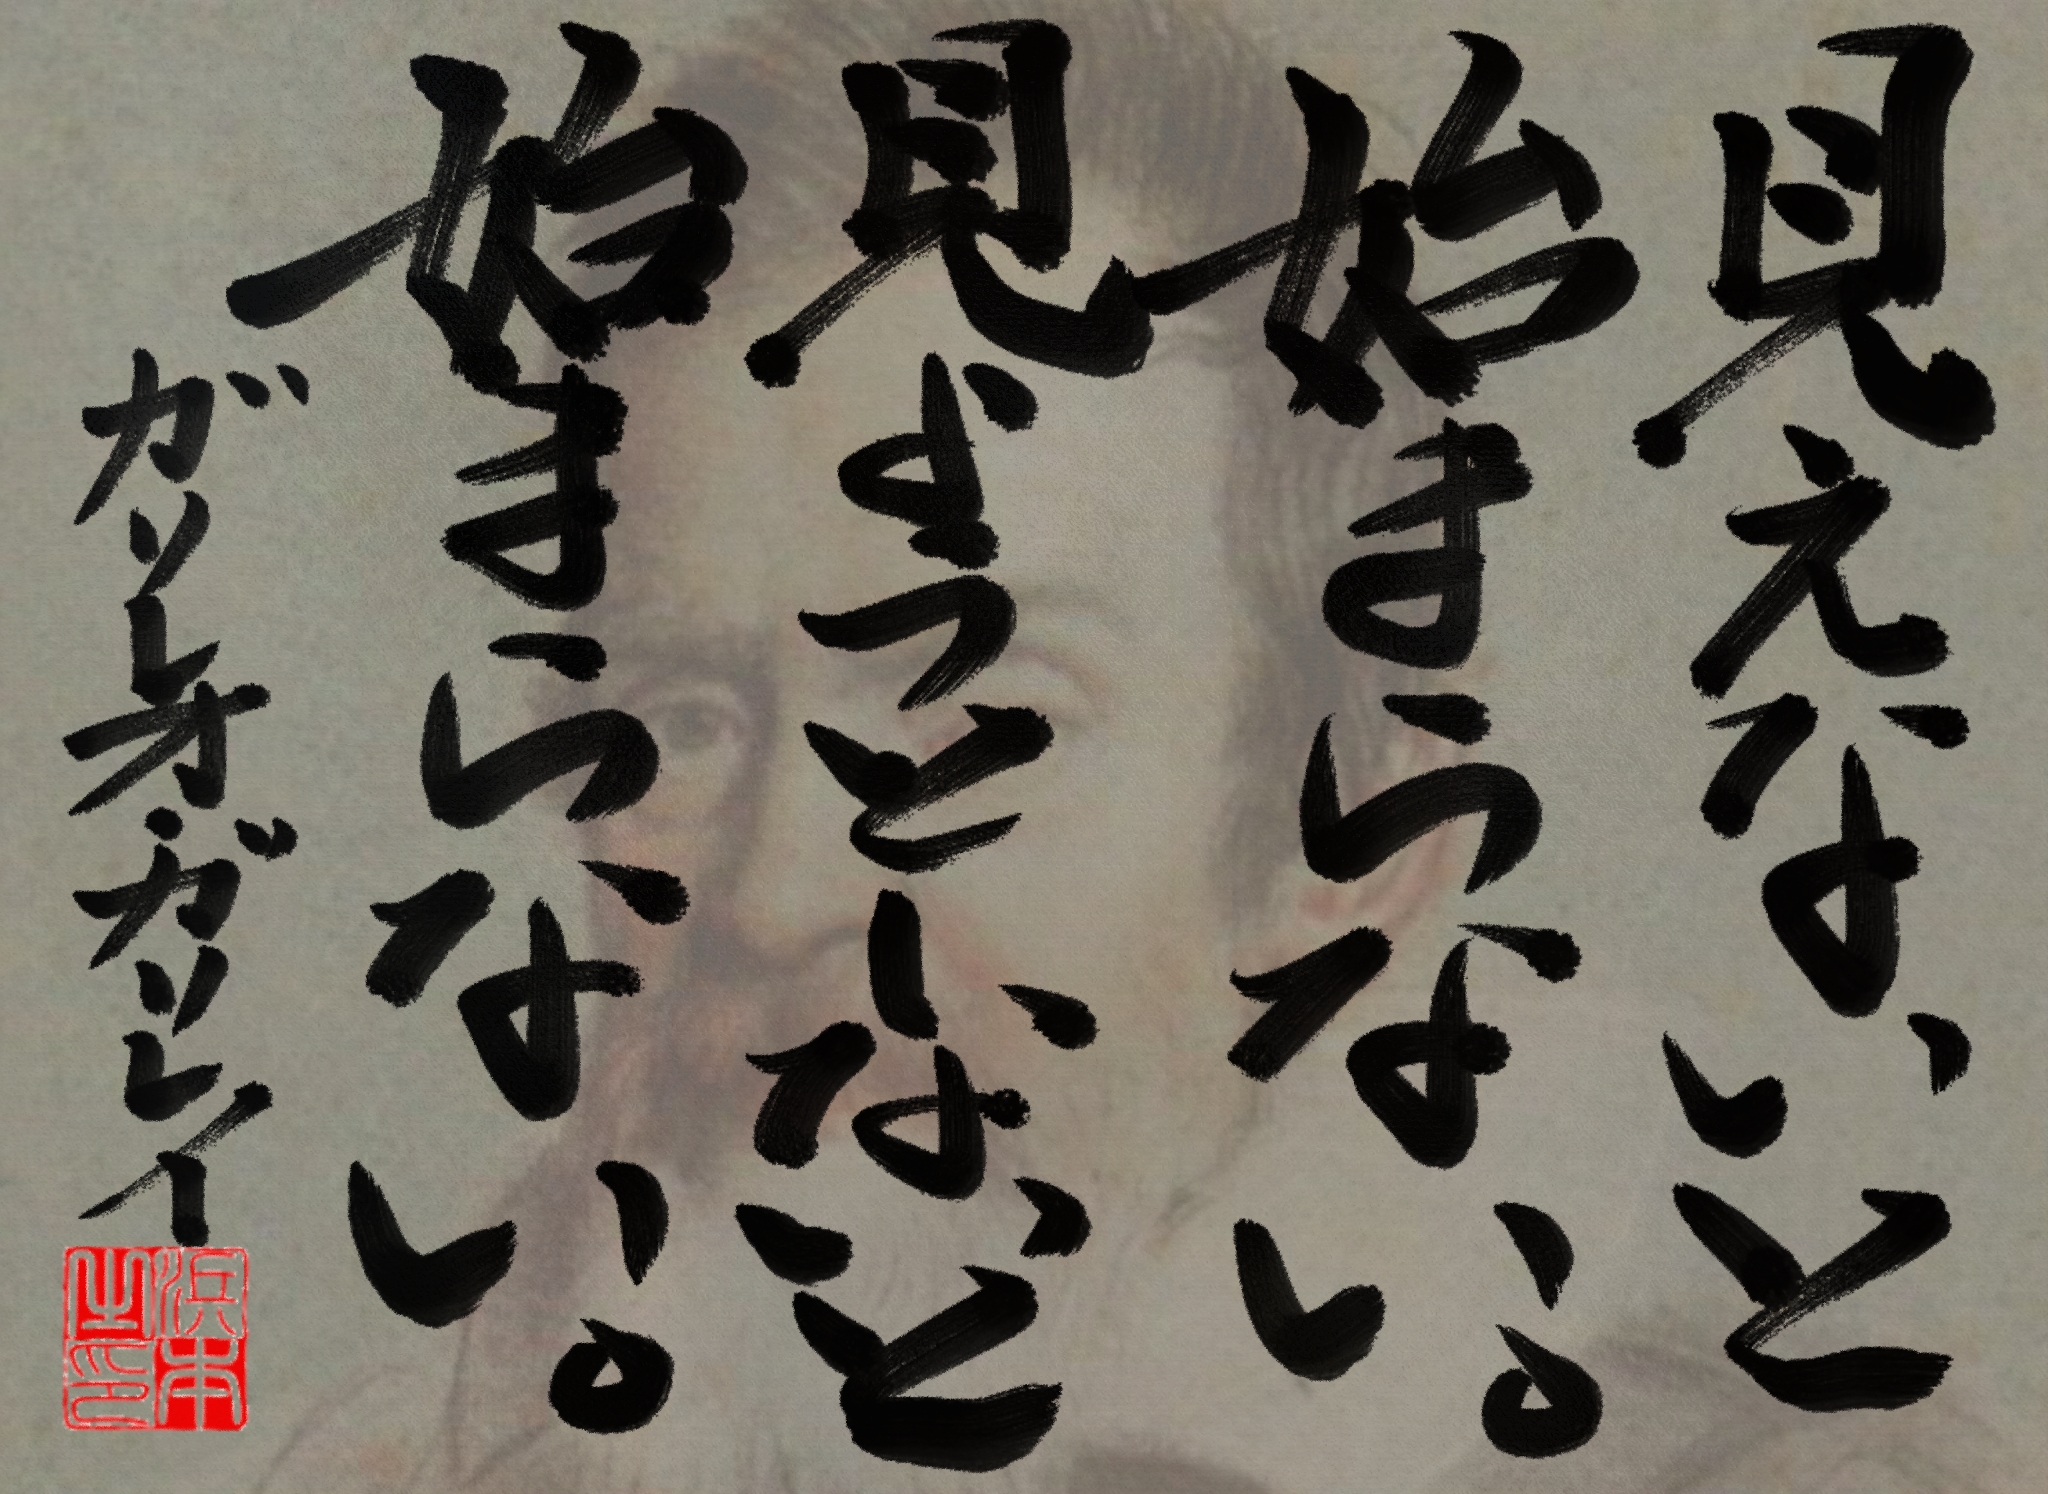 見えないと
始まらない。
見ようとしないと
始まらない。
ガリレオ・ガリレイ
浜本
之印